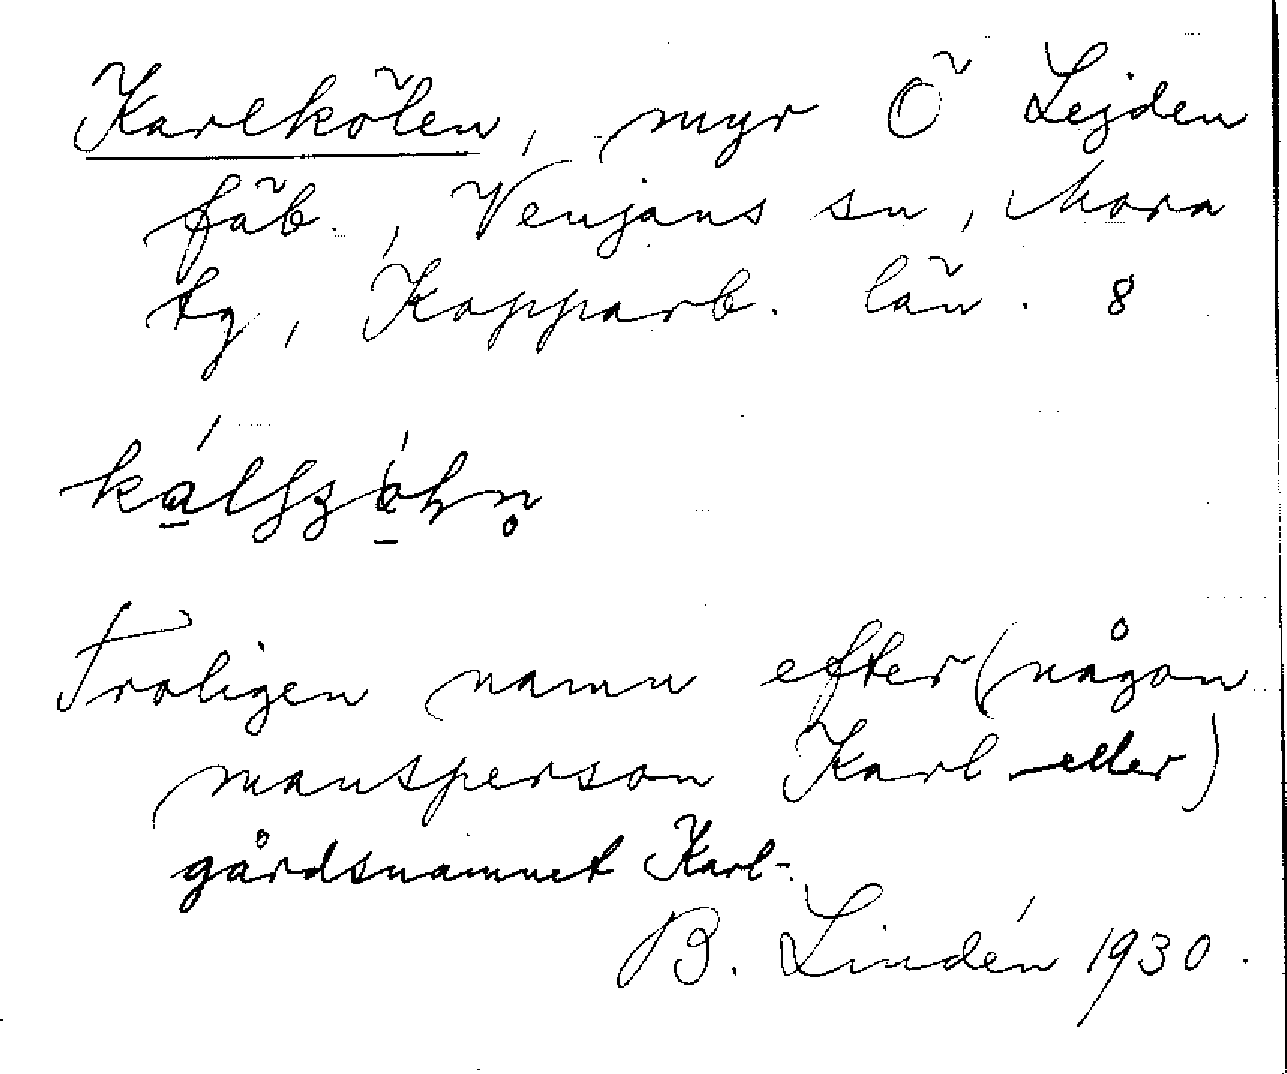 Karlkölen, myr Ö Lejden
fäb., Venjans sn, Mora
tg, Kopparb. län. 8
Troligen namn efter (någon
mansperson Karl eller)
gårdsnamnet Karl-.
B. Lindén 1930.